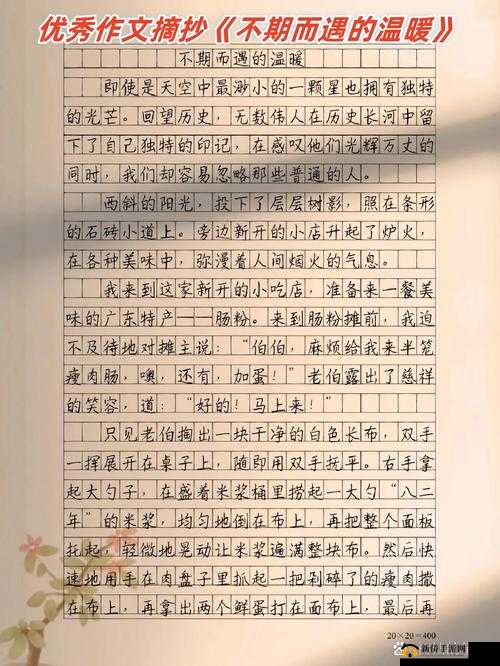 优秀作文摘抄《不期而遇的温暖》
不期而遇的温暖
即使是天空中最渺小的一颗星也拥有独特
的光芒。回望历史，无数伟人在历史长河中留
下了自己独特的印记，在感叹他们光辉万丈的
同时，我们却容易忽略那些普通的人。
西斜的阳光，投下了层层树影，照在条形
的石砖小道上。旁边新开的小店升起了炉火，
在各种美味中，弥漫着人间烟火的气息。
我来到这家新开的小吃店，准备来一餐美
味的广东特产——肠粉。来到肠粉摊前，我迫
不及待地对摊主说：“伯伯，麻烦给我来半笼
瘦肉肠，噢，还有，加蛋！”老伯露出了慈祥
的笑容，道：“好的！马上来！”
只见老伯掏出一块干净的白色长布，双手
一挥展开在桌子上，随即用双手抚平。右手拿
起大勺子，在盛着米浆桶里捞起一大勺“八二
年”的米浆，均匀地倒在布上，再把整个面板
托起，轻微地晃动让米浆遍满整块布。然后快
速地用手在肉盘子里抓起一把剁碎了的瘦肉撒
在布上，再拿出两个鲜蛋打在面布上，最后再
20×20=400
新铸手游网